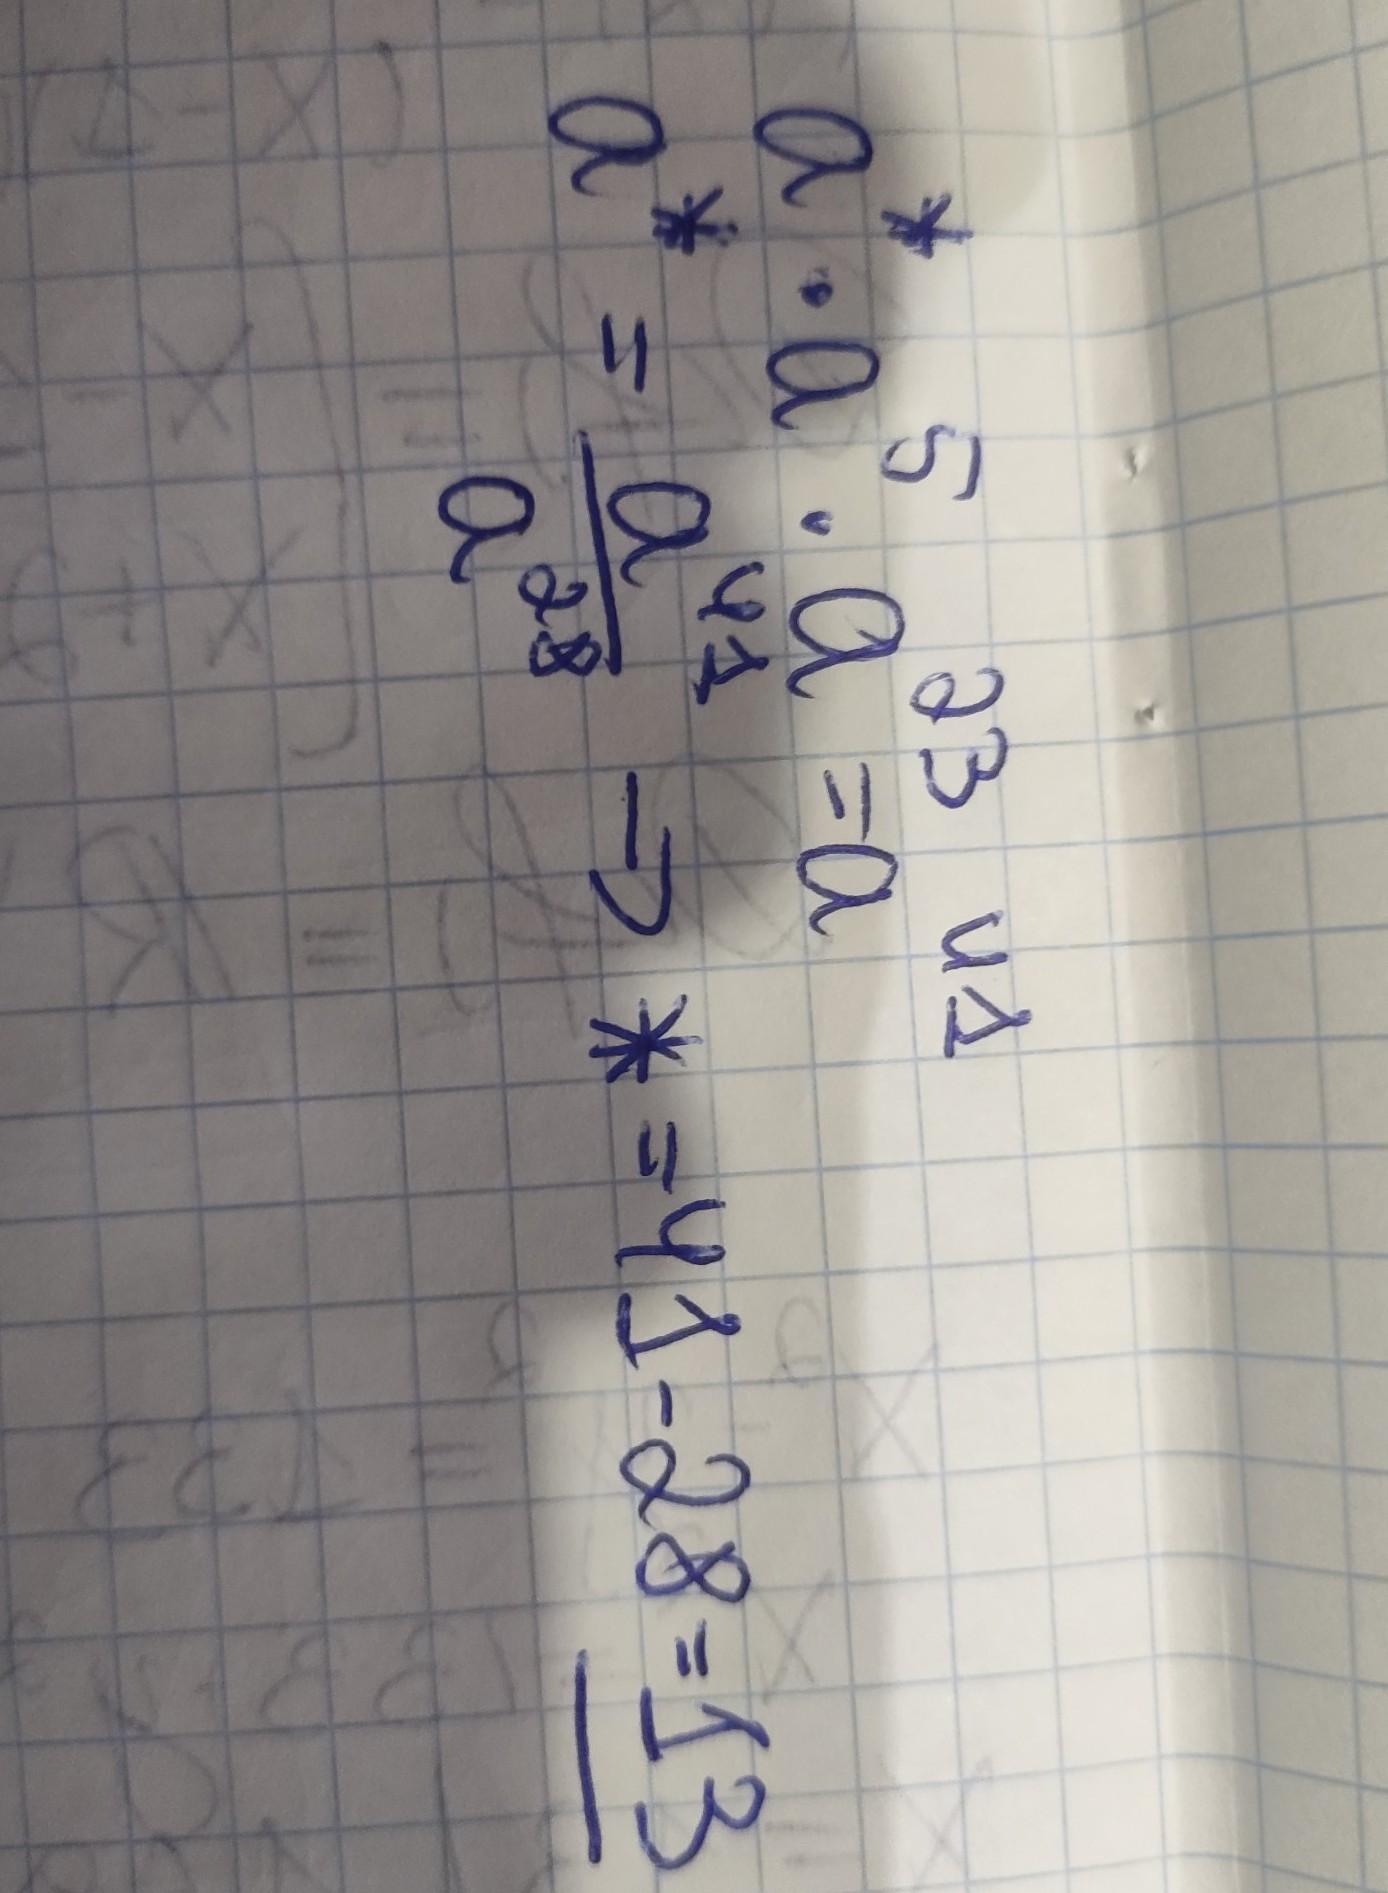 a^* · a^5 · a^23 = a^41
a^* = a^41/a^28 → * = 41 - 28 = 13